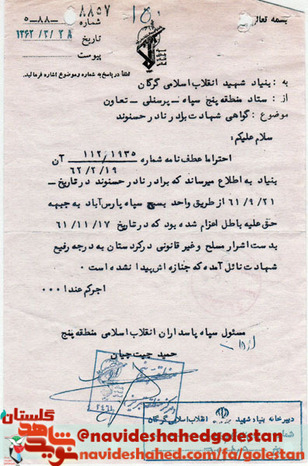 بسمه تعالی
شماره ۸۸۵۷ - ۵-۸۸
تاریخ ۱۳۶۲/۲/۲۸
پیوست
لطفا در پاسخ به شماره و موضوع اشاره فرمائید.
به : بنیاد شهید انقلاب اسلامی گرگان
از : ستاد منطقه پنج سپاه - پرسنلی - تعاون
موضوع : گواهی شهادت برادر نادر حسنوند
سلام علیکم :
احتراما عطف نامه شماره ۱۱۲/۱۹۳۵ آن
۶۲/۲/۱۹
بنیاد به اطلاع میرساند که برادر نادر حسنوند در تاریخ -
۶۱/۹/۲۱ از طریق واحد بسیج سپاه پارس‌آباد به جبهه
حق علیه باطل اعزام شده بود که در تاریخ ۶۱/۱۱/۱۷
بدست اشرار مسلح و غیر قانونی در کردستان به درجه رفیع
شهادت نائل آمده که جنازه اش پیدا نشده است ۰
اجرکم عندا ۰۰۰
مسئول سپاه پاسداران انقلاب اسلامی منطقه پنج
حمید چیت چیان
دبیرخانه بنیاد شهید انقلاب اسلامی گرگان
نوید شاهد گلستان
@navideshahedgolestan
navideshahed.com/fa/golestan